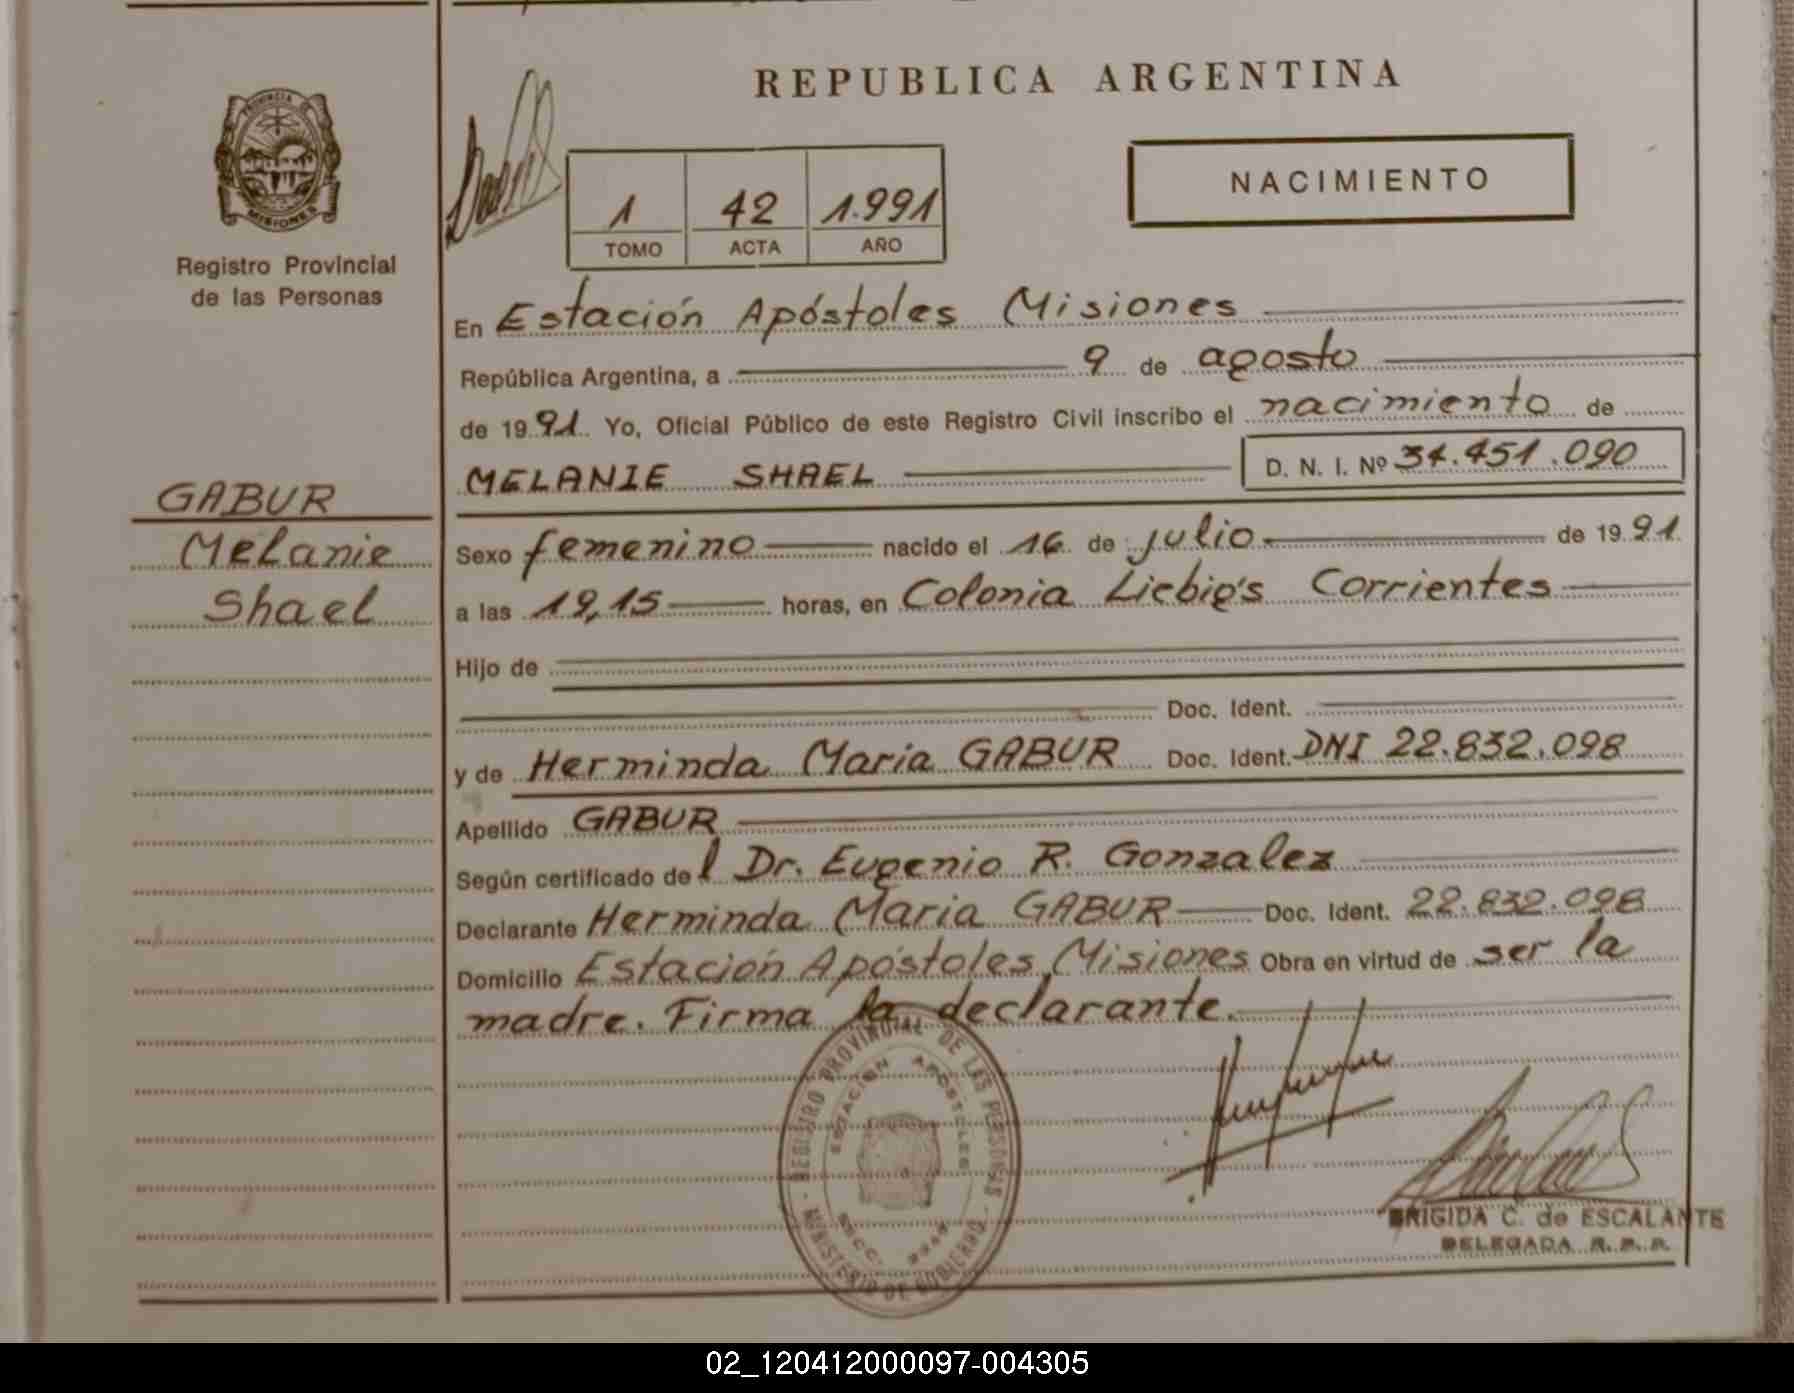 REPUBLICA ARGENTINA
PROVINCIA DE
MISIONES
Registro Provincial
de las Personas
1 42 1.991
TOMO ACTA AÑO
NACIMIENTO
GABUR
Melanie
Shael
En Estación Apóstoles Misiones
República Argentina, a 9 de agosto
de 1991 Yo, Oficial Público de este Registro Civil inscribo el nacimiento de
MELANIE SHAEL D. N. I. Nº 34.451.090
Sexo femenino nacido el 16 de julio de 1991
a las 19,15 horas, en Colonia Liebig's Corrientes
Hijo de
Doc. Ident.
y de Herminda Maria GABUR Doc. Ident. DNI 22.832.098
Apellido GABUR
Según certificado del Dr. Eugenio R. Gonzalez
Declarante Herminda Maria GABUR Doc. Ident. 22.832.098
Domicilio Estación Apóstoles, Misiones Obra en virtud de ser la
madre. Firma la declarante.
REGISTRO PROVINCIAL DE LAS PERSONAS
ESTACION APOSTOLES
MINISTERIO DE GOBIERNO
BRIGIDA C. de ESCALANTE
DELEGADA R. P. P.
02_120412000097-004305